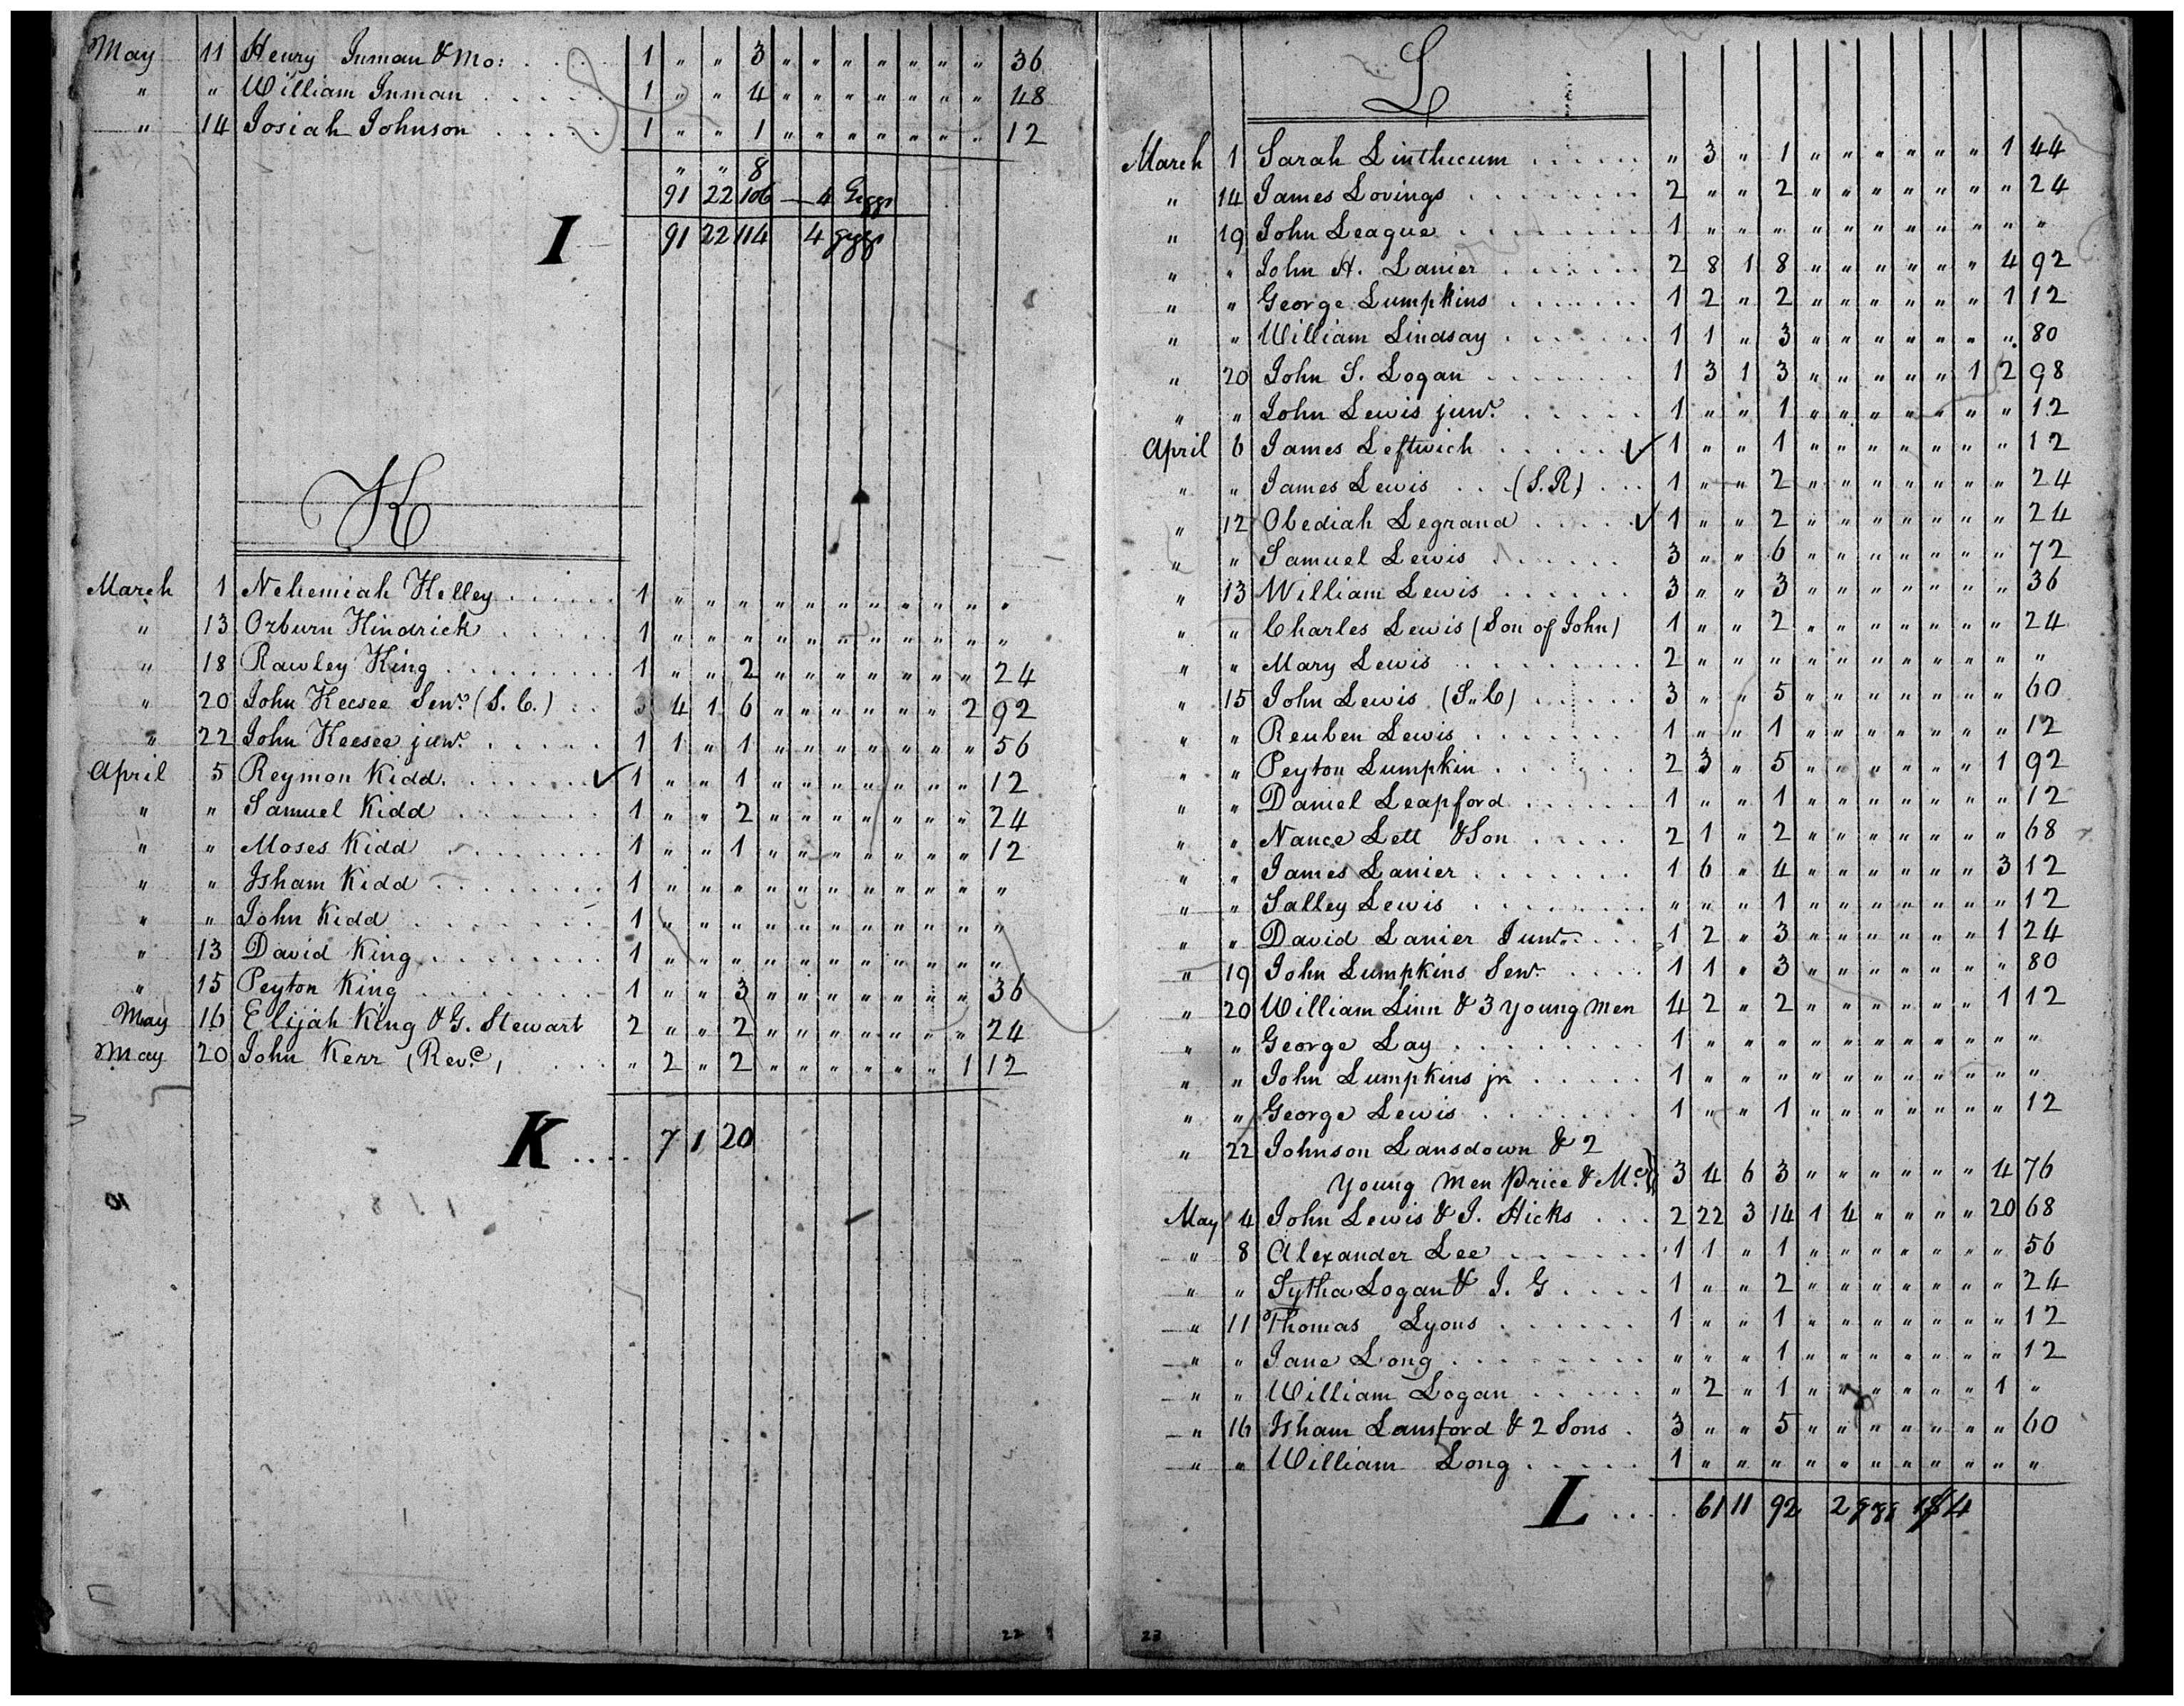 May 11 Henry Inman & Mo: 1 " " 3 " " " " " " " 36
" " William Inman 1 " " 4 " " " " " " " 48
" 14 Josiah Johnson 1 " " 1 " " " " " " " 12
" " 8
91 22 106 — 4 Giggs
I 91 22 114 4 gggs
K
March 1 Nehemiah Kelley 1 " " " " " " " " " " "
" 13 Ozburn Kindrick 1 " " " " " " " " " " "
" 18 Rawley King 1 " " 2 " " " " " " " 24
" 20 John Keesee Senr. (S. C.) 3 4 1 6 " " " " " " 2 92
" 22 John Keesee junr. 1 1 " 1 " " " " " " " 56
April 5 Reymon Kidd ✓ 1 " " 1 " " " " " " " 12
" " Samuel Kidd 1 " " 2 " " " " " " " 24
" " Moses Kidd 1 " " 1 " " " " " " " 12
" " Isham Kidd 1 " " " " " " " " " " "
" " John Kidd 1 " " " " " " " " " " "
" 13 David King 1 " " " " " " " " " " "
" 15 Peyton King 1 " " 3 " " " " " " " 36
May 16 Elijah King & G. Stewart 2 " " 2 " " " " " " " 24
May 20 John Kerr (Revd.) " 2 " 2 " " " " " " 1 12
K 7 1 20
22
L
March 1 Sarah Linthicum " 3 " 1 " " " " " " 1 44
" 14 James Lovings 2 " " 2 " " " " " " " 24
" 19 John League 1 " " " " " " " " " " "
" " John H. Lanier 2 8 1 8 " " " " " " 4 92
" " George Lumpkins 1 2 " 2 " " " " " " 1 12
" " William Lindsay 1 1 " 3 " " " " " " " 80
" 20 John S. Logan 1 3 1 3 " " " " " 1 2 98
" " John Lewis junr. 1 " " 1 " " " " " " " 12
April 6 James Leftwich ✓ 1 " " 1 " " " " " " " 12
" " James Lewis (S.R) 1 " " 2 " " " " " " " 24
" 12 Obediah Legrand ✓ 1 " " 2 " " " " " " " 24
" " Samuel Lewis 3 " " 6 " " " " " " " 72
" 13 William Lewis 3 " " 3 " " " " " " " 36
" " Charles Lewis (Son of John) 1 " " 2 " " " " " " " 24
" " Mary Lewis 2 " " " " " " " " " " "
" 15 John Lewis (S..C) 3 " " 5 " " " " " " " 60
" " Reuben Lewis 1 " " 1 " " " " " " " 12
" " Peyton Lumpkin 2 3 " 5 " " " " " " 1 92
" " Daniel Leapford 1 " " 1 " " " " " " " 12
" " Nance Lett & Son 2 1 " 2 " " " " " " " 68
" " James Lanier 1 6 " 4 " " " " " " 3 12
" " Salley Lewis " " " 1 " " " " " " " 12
" " David Lanier Junr. 1 2 " 3 " " " " " " 1 24
" 19 John Lumpkins Senr. 1 1 " 3 " " " " " " " 80
" 20 William Linn & 3 young men 4 2 " 2 " " " " " " 1 12
" " George Lay 1 " " " " " " " " " " "
" " John Lumpkins jr. 1 " " " " " " " " " " "
" " George Lewis 1 " " 1 " " " " " " " 12
" 22 Johnson Lansdown & 2
young men Price & Mc. 3 4 6 3 " " " " " " 4 76
May 4 John Lewis & J. Hicks 2 22 3 14 1 4 " " " " 20 68
" 8 Alexander Lee 1 1 " 1 " " " " " " " 56
" " Sytha Logan & J. G 1 " " 2 " " " " " " " 24
" 11 Thomas Lyons 1 " " 1 " " " " " " " 12
" " Jane Long " " " 1 " " " " " " " 12
" " William Logan " 2 " 1 " " " " " " 1 "
" 16 Isham Lansford & 2 Sons 3 " " 5 " " " " " " " 60
" " William Long 1 " " " " " " " " " " "
L 61 11 92 2 ggs
23